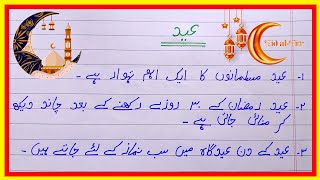 عید
۱۔ عید مسلمانوں کا ایک اہم تہوار ہے۔
۲۔ عید رمضان کے ۳۰ روزے رکھنے کے بعد چاند دیکھ
کر منائی جاتی ہے۔
۳۔ عید کے دن عیدگاہ میں سب نماز کے لئے جاتے ہیں۔